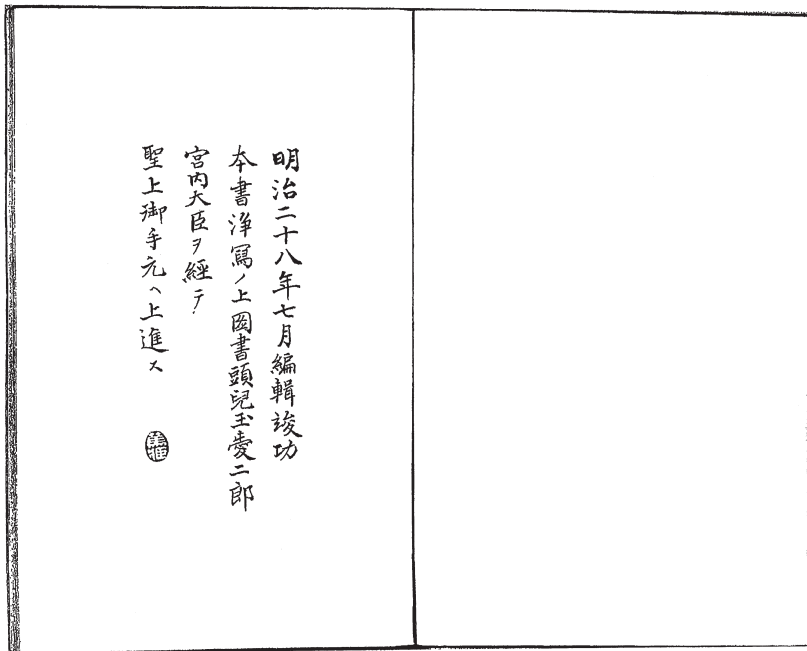 明治二十八年七月編輯竣功
本書淨寫ノ上圖書頭兒玉愛二郎
宮内大臣ヲ經テ
聖上御手元ヘ上進ス